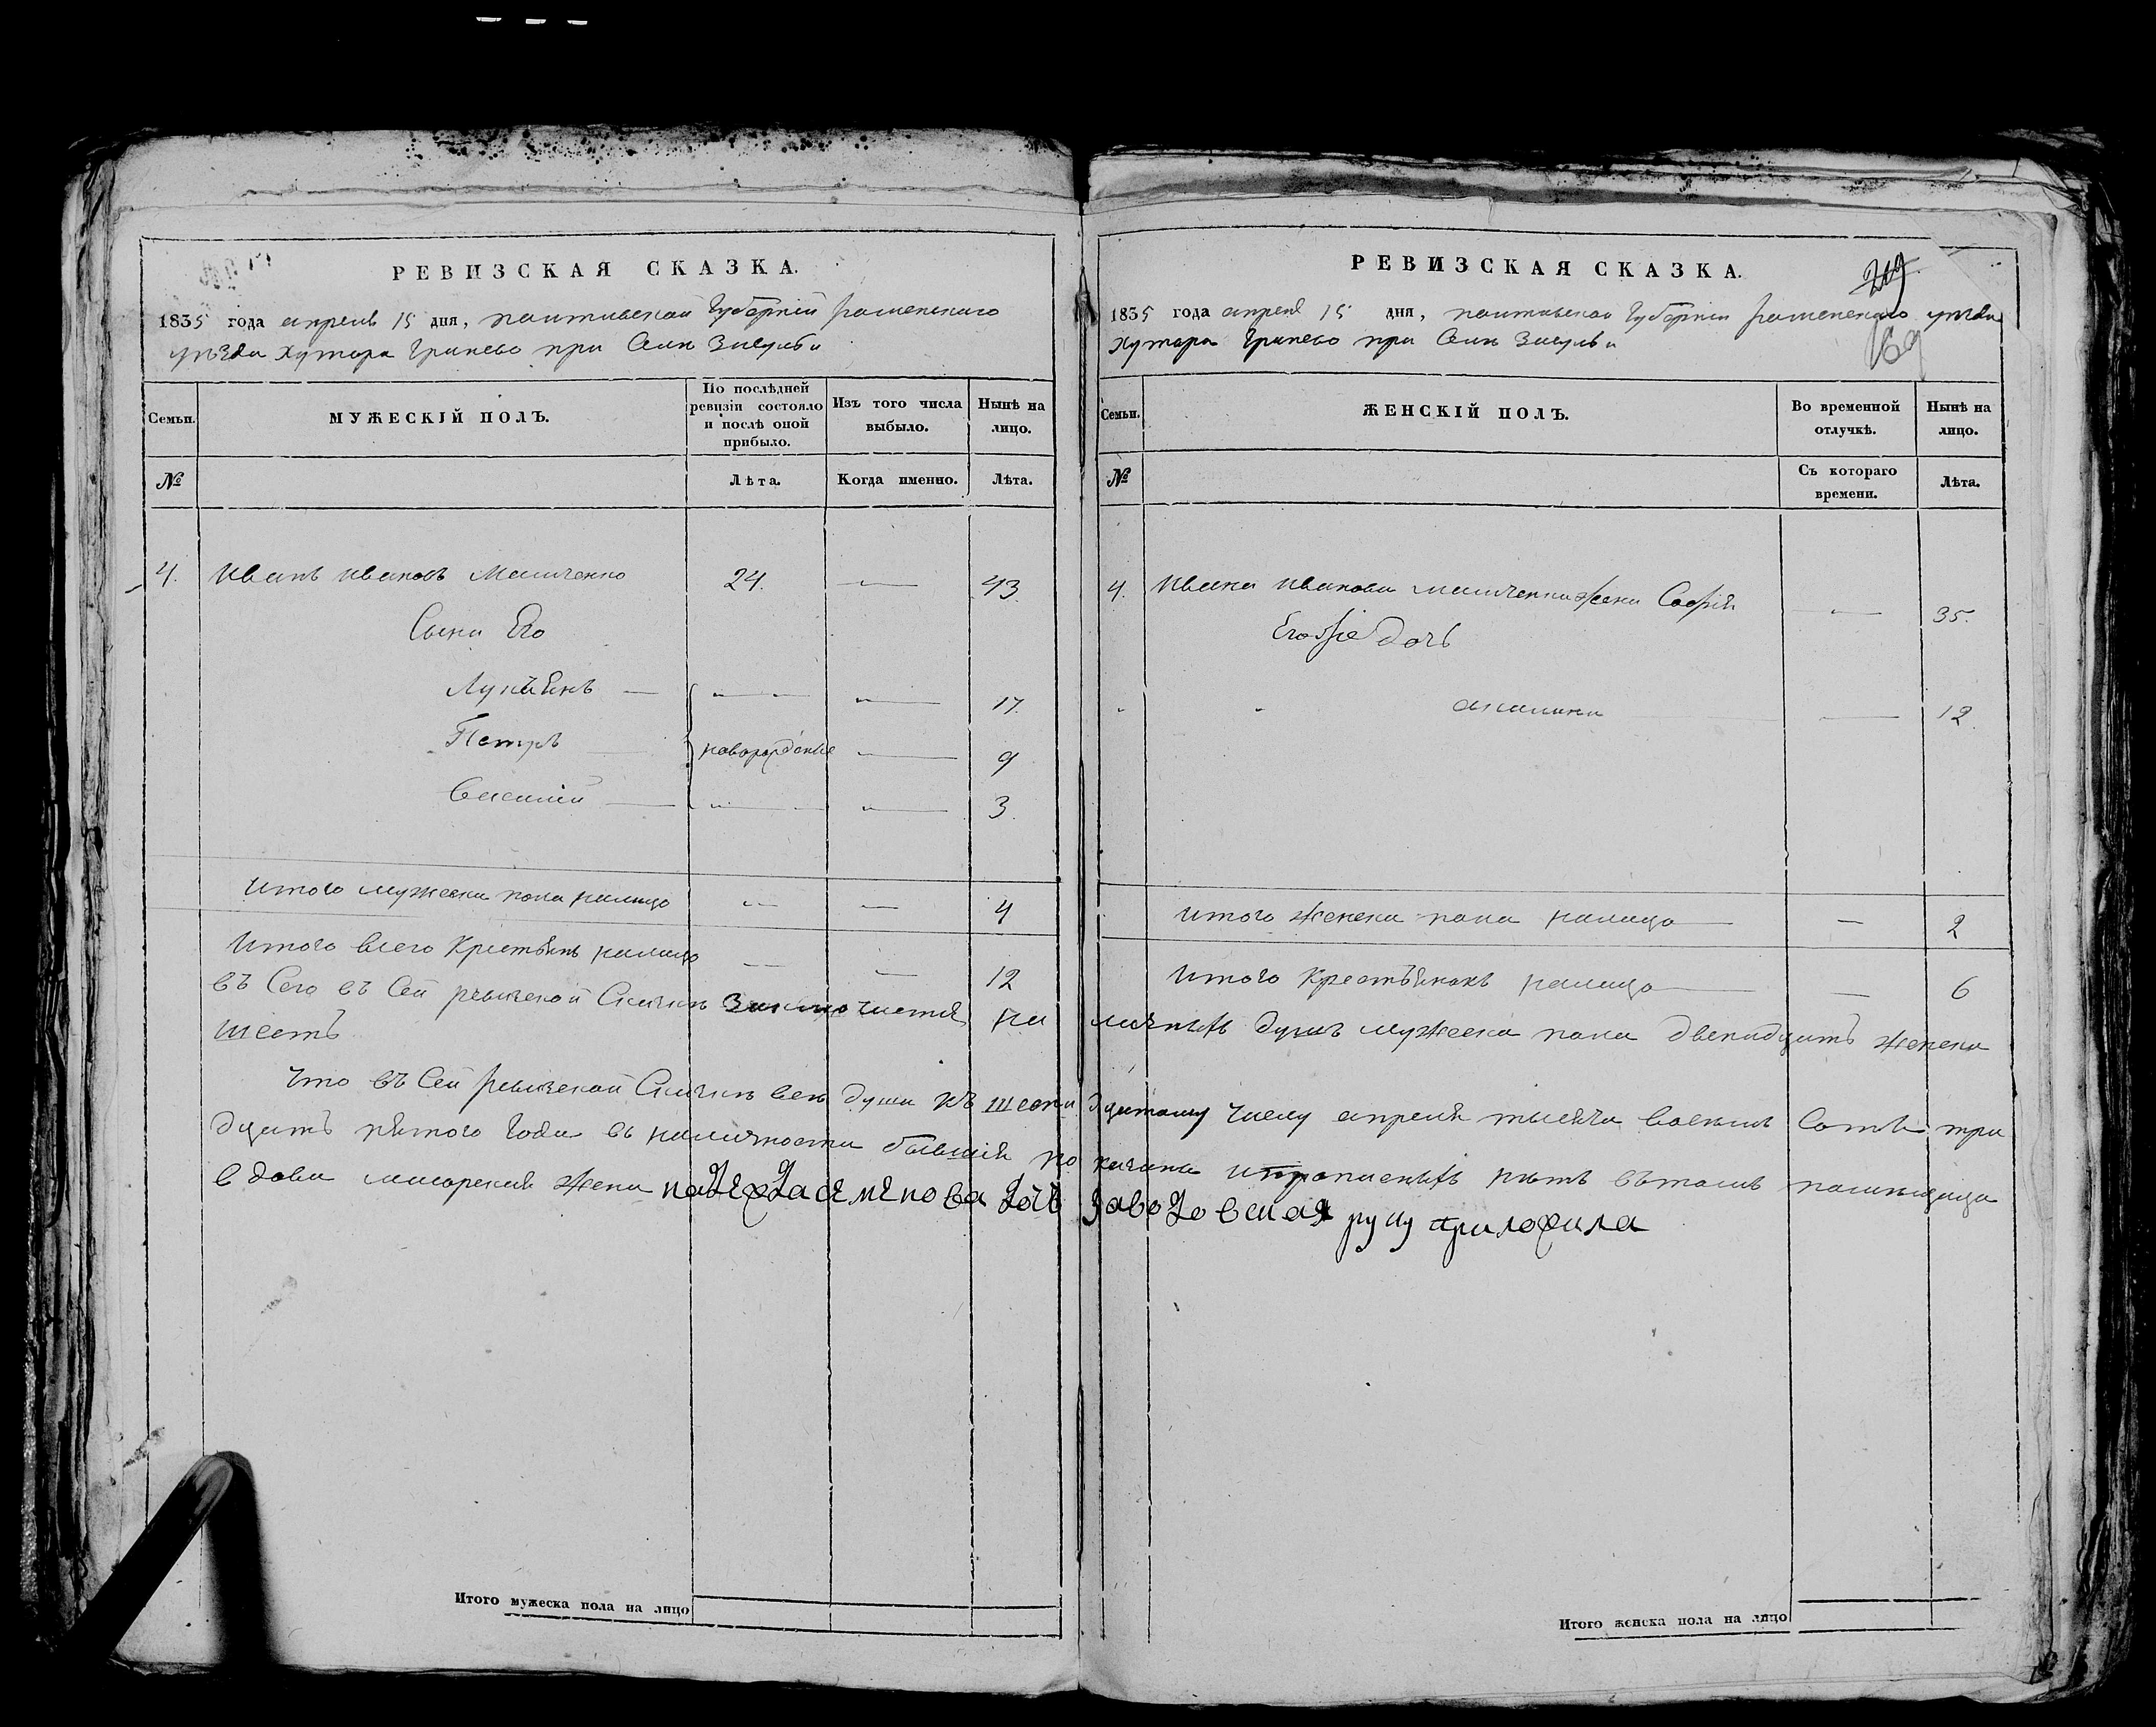 РЕВИЗСКАЯ СКАЗКА.
1835 года апреля 15 дня, полтавской Губернии роменского
уезда хутора Гринево при Селе
Семьи.
МУЖЕСКІЙ ПОЛЪ.
По послѣдней ревизіи состояло и послѣ оной прибыло.
Изъ того числа выбыло.
Нынѣ на лицо.
№
Лѣта.
Когда именно.
Лѣта.
4. Иванъ Ивановъ 24. 43.
Сыни Его
Лукьянъ 17.
Петръ новорожденые 9
Василий 3.
Итого мужеска пола налицо 4
Итого всего Крестьянъ налицо 12
РЕВИЗСКАЯ СКАЗКА.
219
169
1835 года апреля 15 дня, полтавской Губернии роменского уезда
хутора Гринево при Селе
Семьи.
ЖЕНСКІЙ ПОЛЪ.
Во временной отлучкѣ.
Нынѣ на лицо.
№
Съ котораго времени.
Лѣта.
4. Ивана Иванова жена Софія 35.
Егожъ дочь
12.
Итого женска пола налицо 2
Итого Крестьянокъ налицо 6
въ Сей ревизской Сказке заключается наличныхъ душъ мужеска пола двенадцать женска
шесть
Что въ Сей ревизской Сказке все души къ шестнадцатому числу апреля тысяча восемь Сотъ три
дцать пятого года въ наличности бывшия показаны и нетъ въ томъ помещица
вдова жена надежда семенова дочь заводовская руку приложила
Итого мужеска пола на лицо
Итого женска пола на лицо